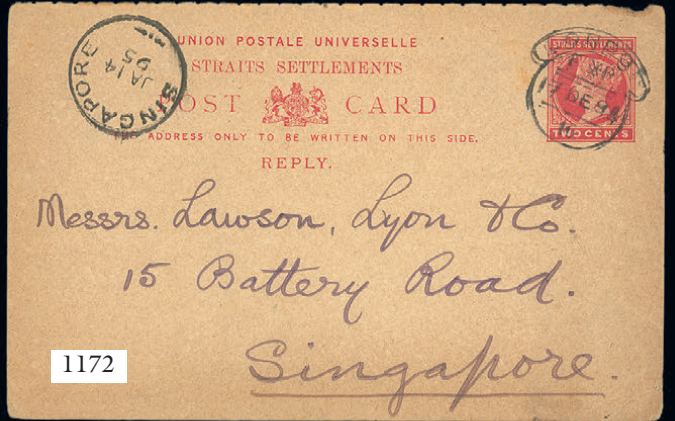 UNION POSTALE UNIVERSELLE
STRAITS SETTLEMENTS
POST CARD
THE ADDRESS ONLY TO BE WRITTEN ON THIS SIDE.
REPLY.
STRAITS SETTLEMENTS
TWO CENTS
SINGAPORE
JA 14
95
DE 94
Messrs. Lawson, Lyon & Co.
15 Battery Road.
Singapore.
1172